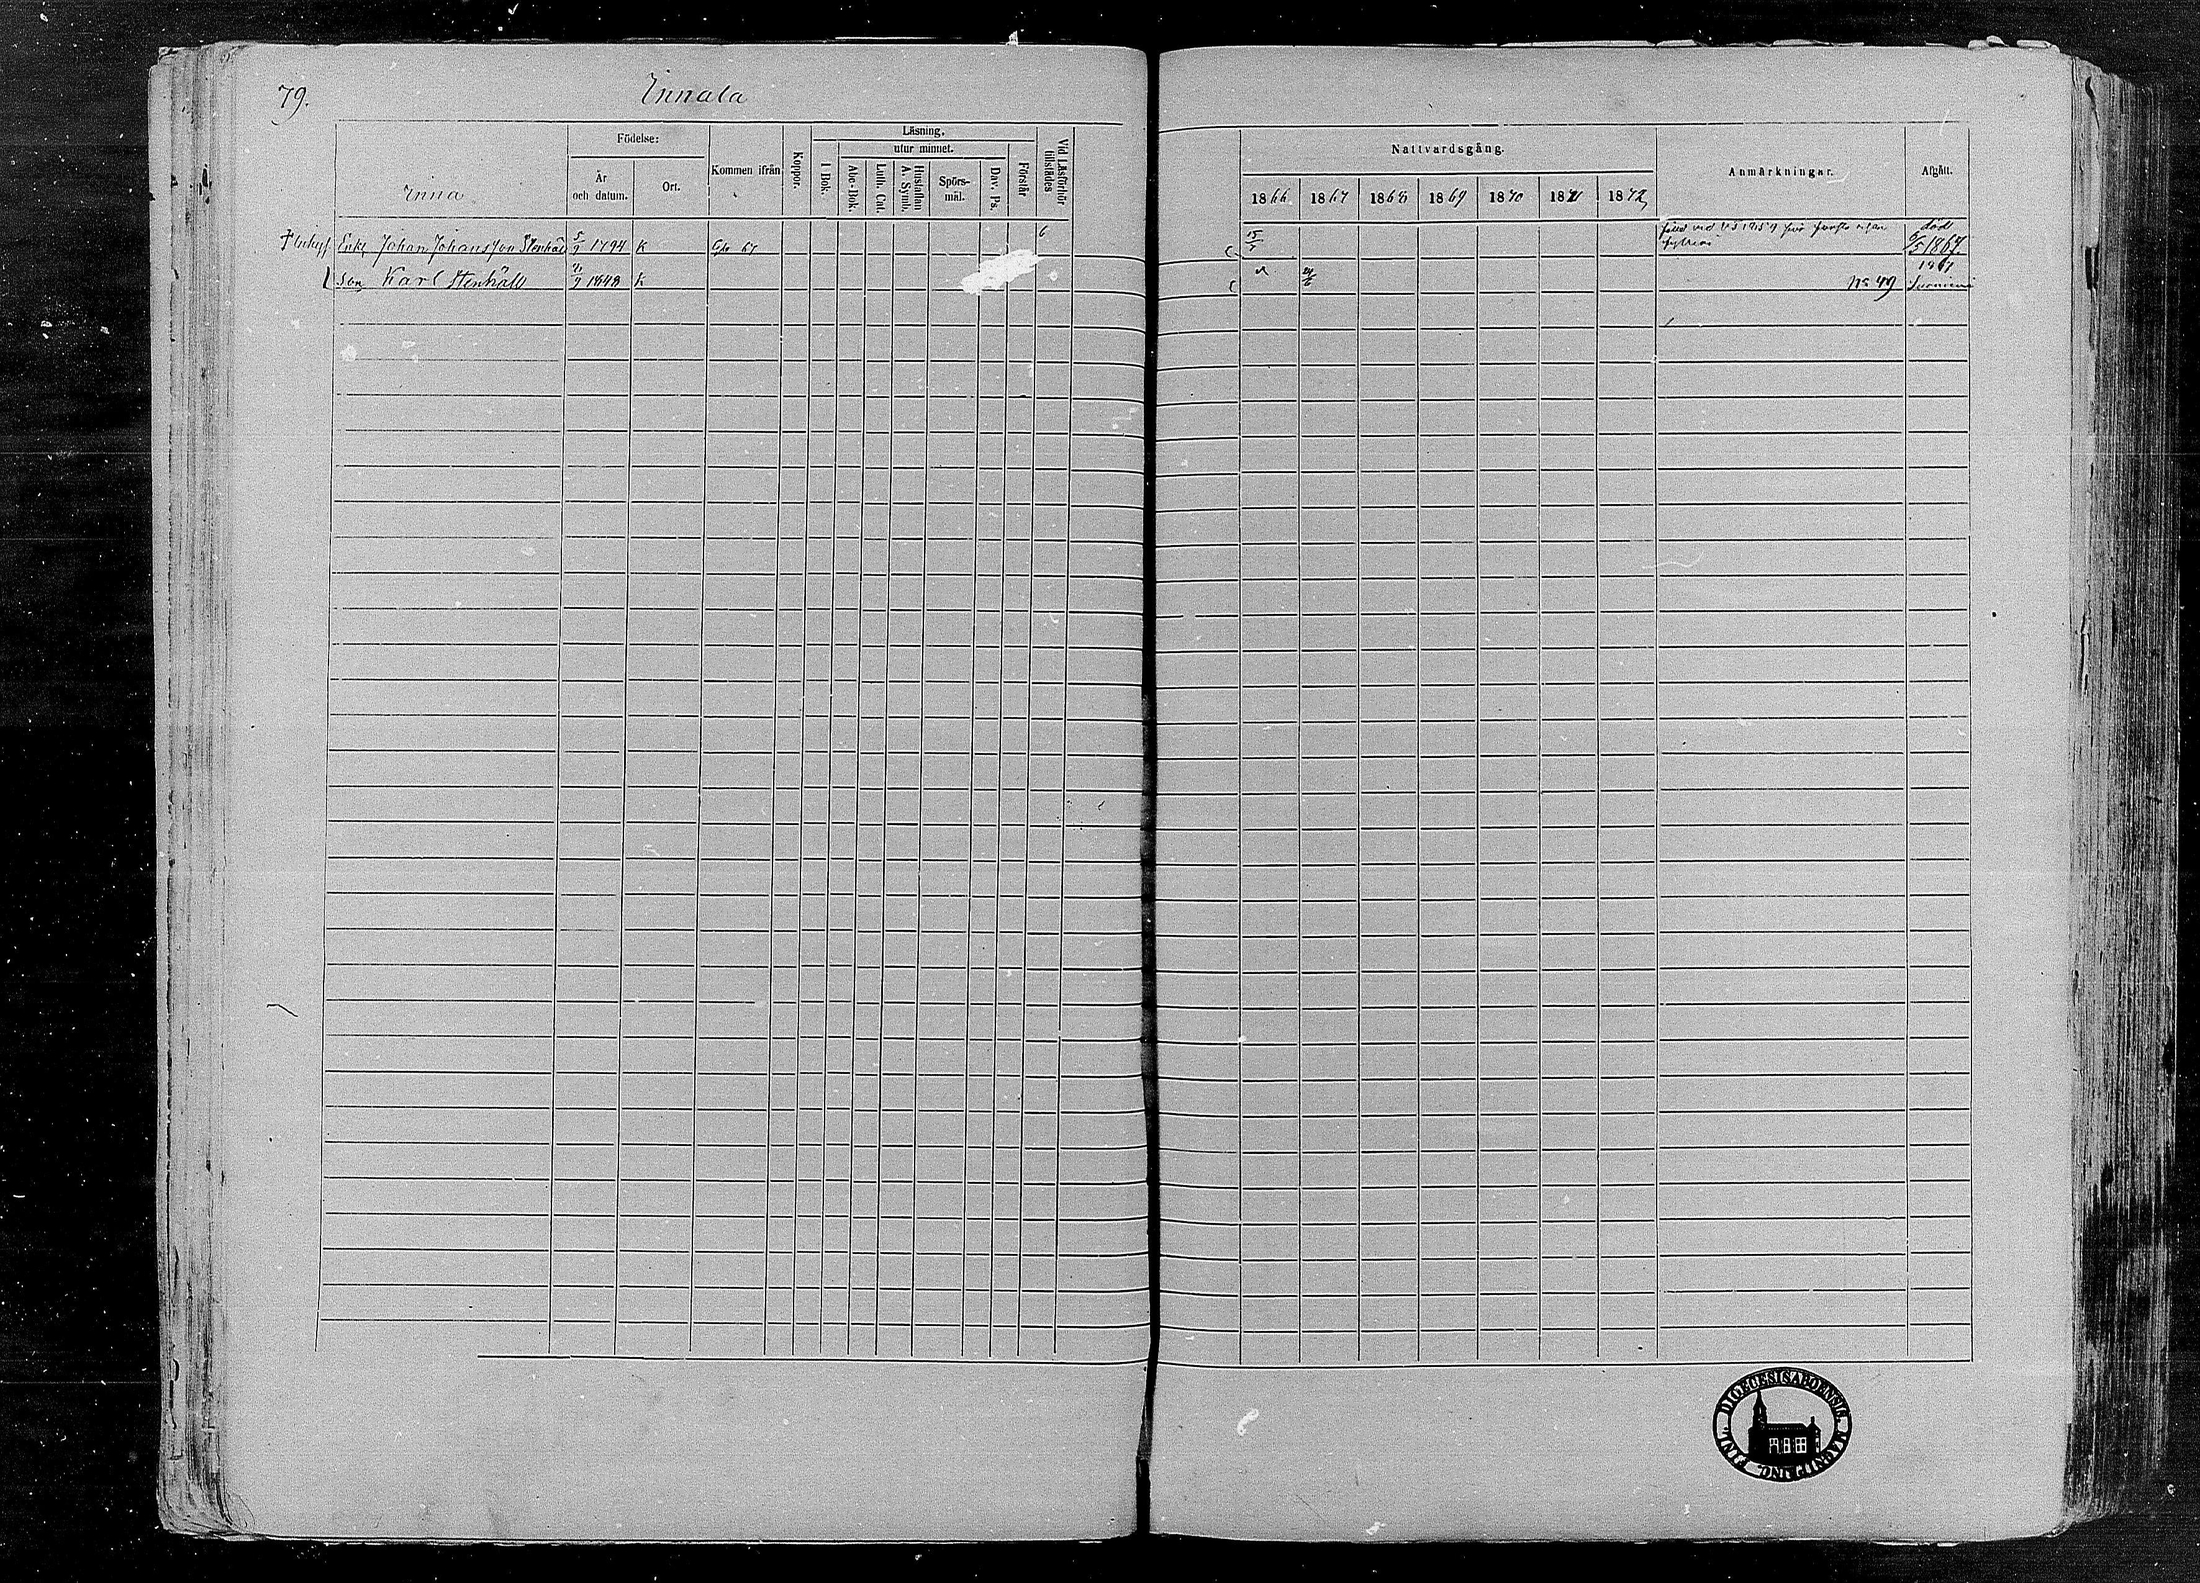 79.
Innala
Inna
Födelse:
År
och datum.
Ort.
Kommen ifrån
Koppor.
Läsning,
utur minnet.
I Bok.
Abc-Bok.
Luth. Cat.
Hustaflan
A. Symb.
Spörs-
mål.
Dav. Ps.
Förstår
Vid Läsförhör
tillstädes
Enkl Johan Johansson Stenhäll 5/9 1794 K 67 6
Son Karl Stenhäll 1848 K
Nattvardsgång.
1866 1867 1868 1869 1870 1871 1872
Anmärkningar.
Afgått.
15/7
död
6/5 1867.
1867
No 49
DIOECESIS ABOENSIS. MAGNI PRINC. FINL.